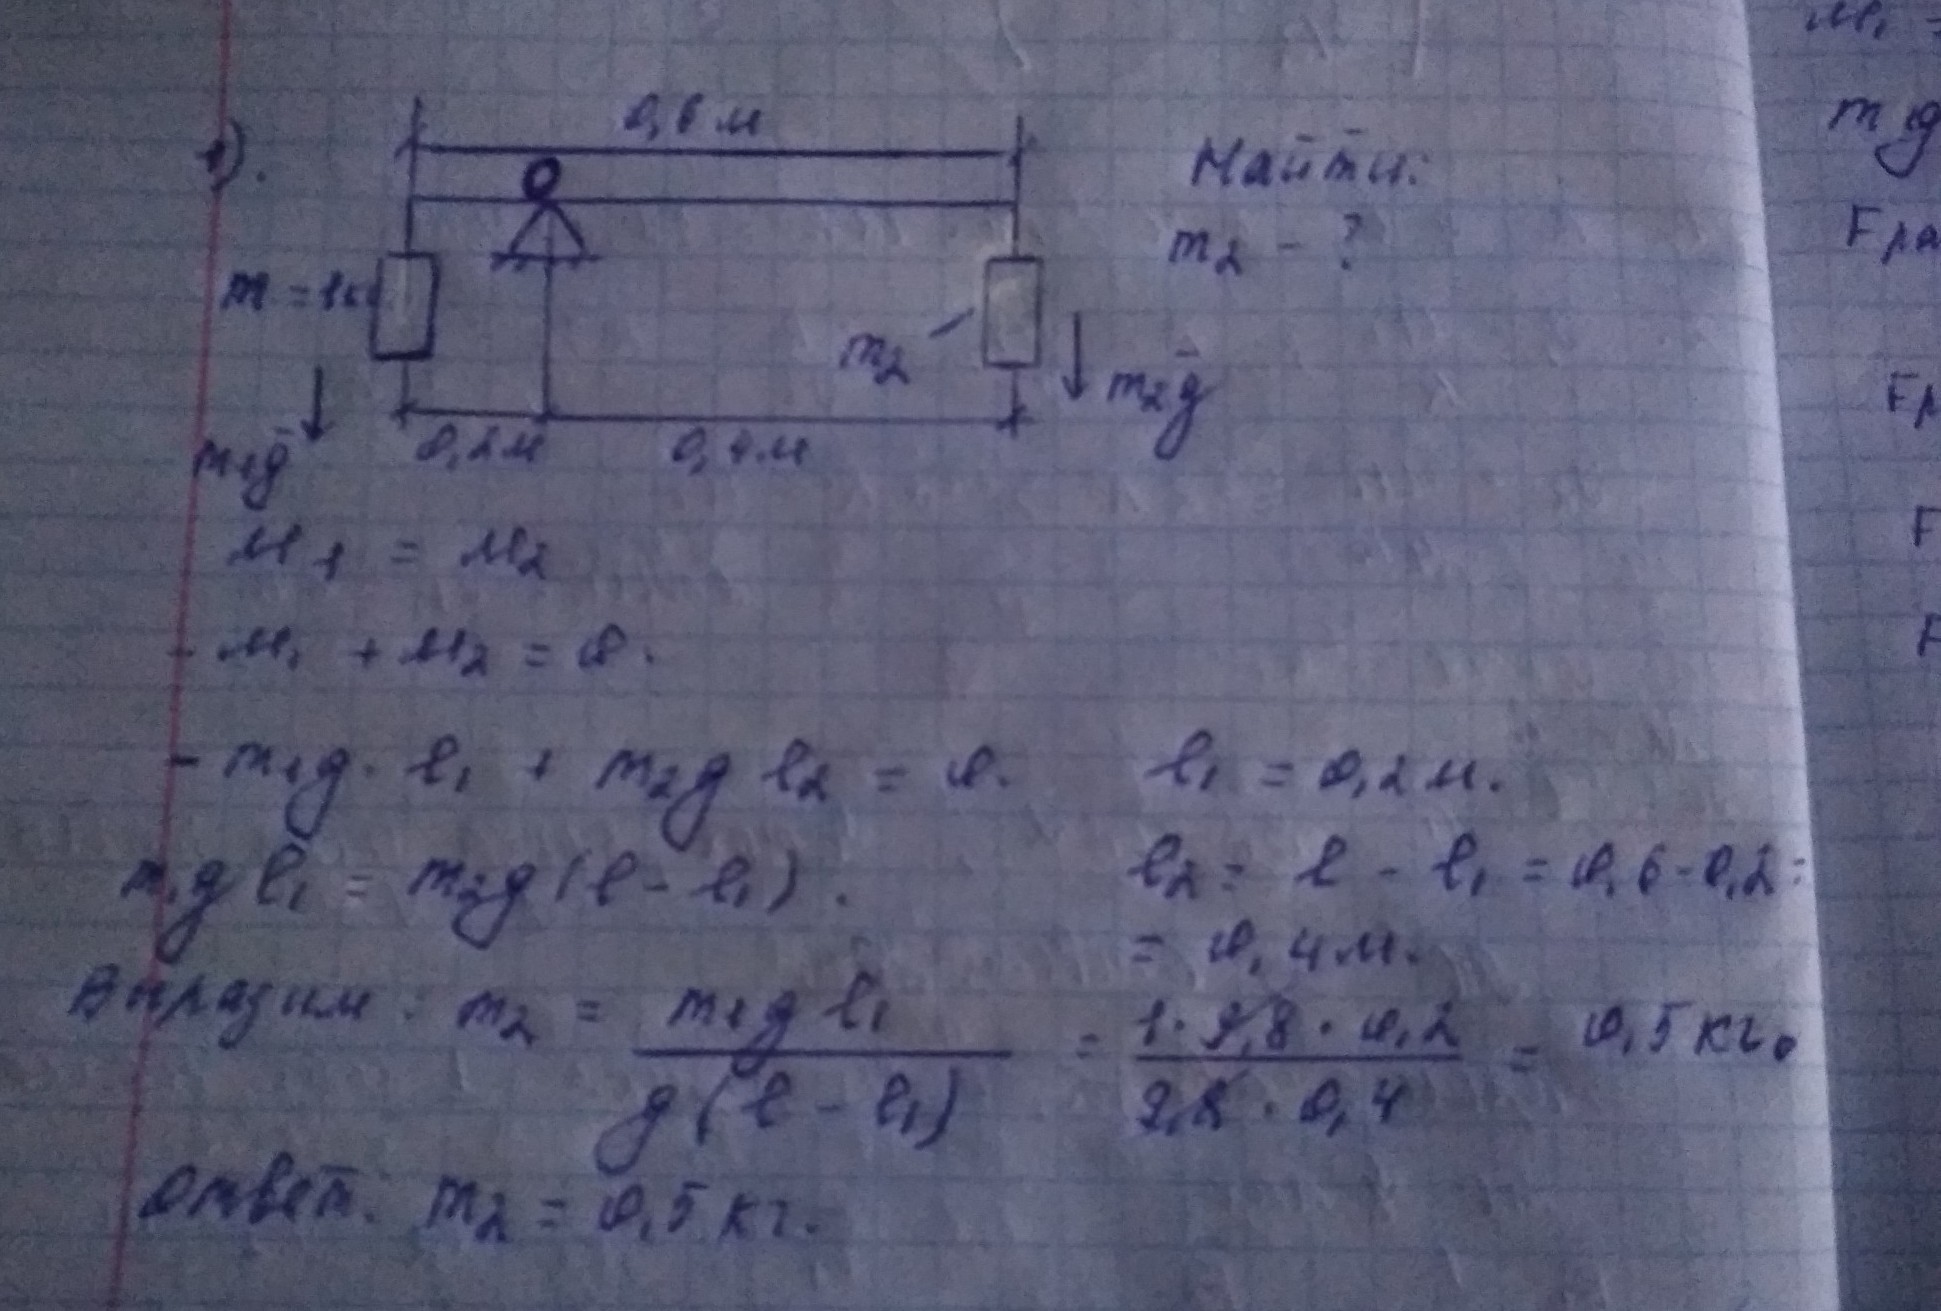 1).
0,6 м
Найти:
m2 - ?
m = 1кг
m2
m2g
m1g
0,2м
0,4м
M1 = M2
- M1 + M2 = 0.
- m1g · l1 + m2g l2 = 0.
l1 = 0,2 м.
m1g l1 = m2g (l - l1).
l2 = l - l1 = 0,6 - 0,2 =
= 0,4 м.
Выразим: m2 = m1g l1 / g (l - l1) = 1 · 9,8 · 0,2 / 9,8 · 0,4 = 0,5 кг.
Ответ: m2 = 0,5 кг.
M1 =
m1g
Fра
Fр
F
F